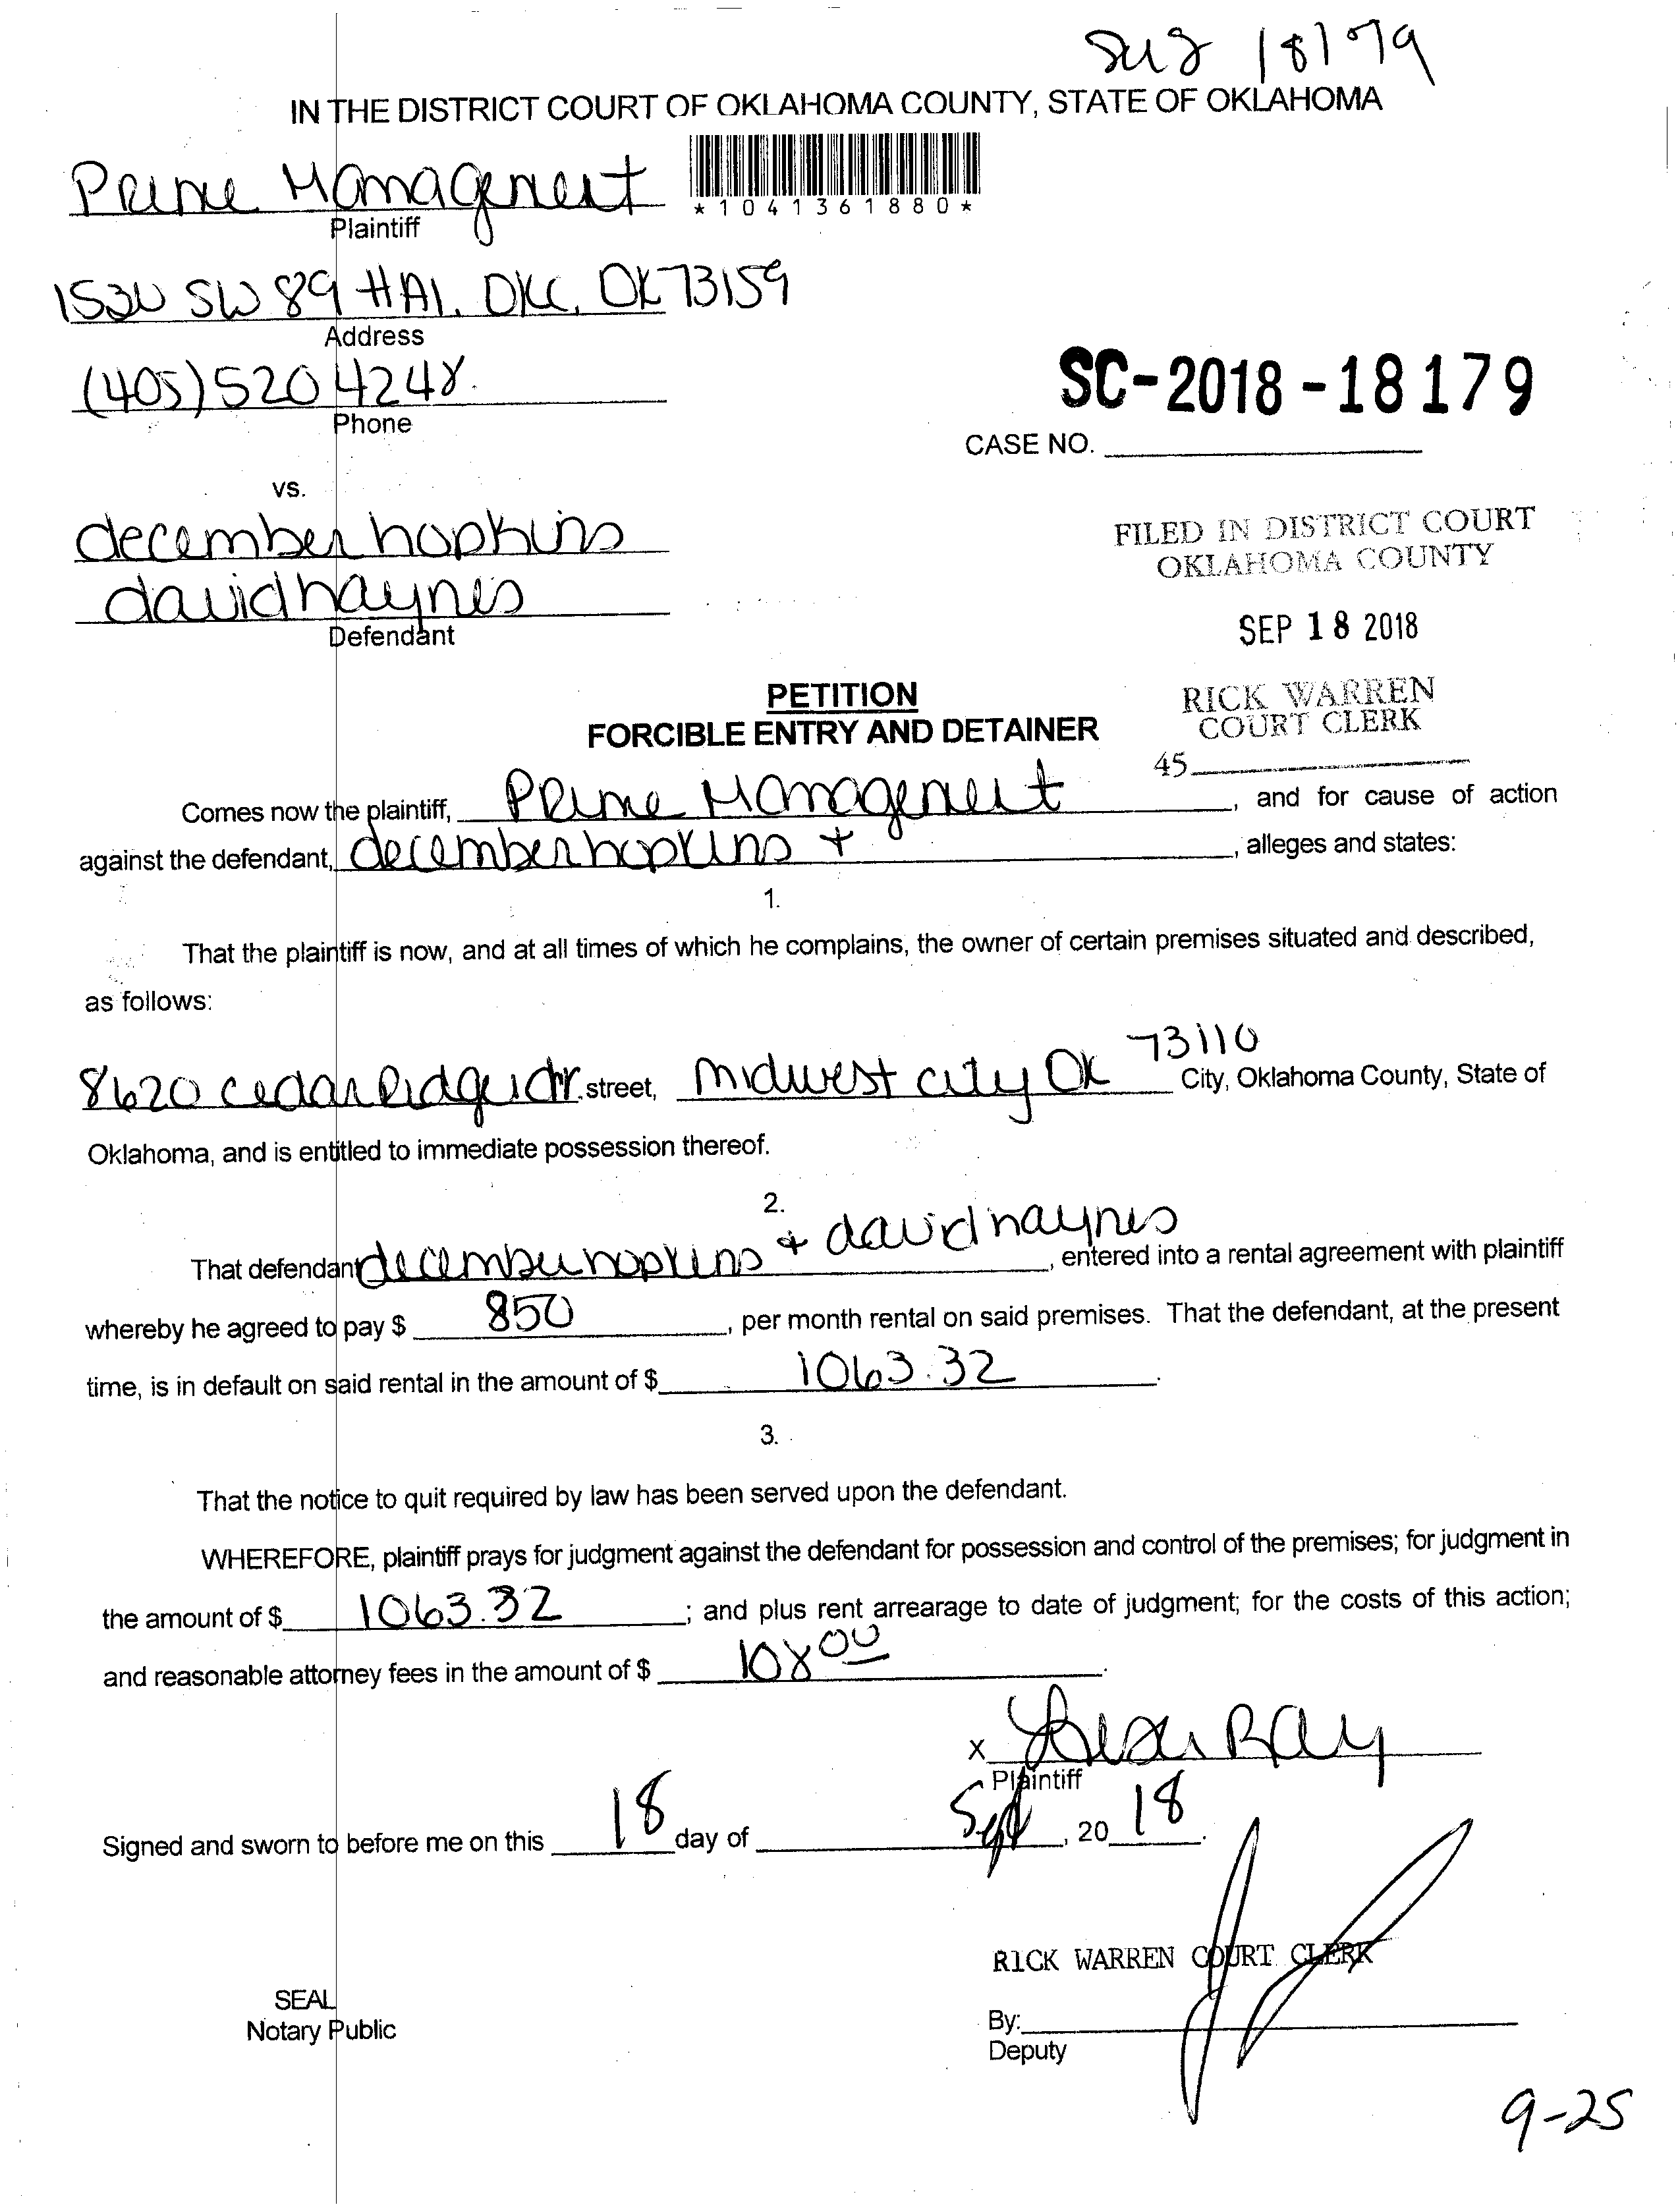 IN THE DISTRICT COURT OF OKLAHOMA COUNTY, STATE OF OKLAHOMA
Prime Management
*1041361880*
Plaintiff
SW 89 #A1, OKC, OK 73159
Address
(405) 520 4248.
Phone
SC-2018-18179
CASE NO.
vs.
december hopkins
david haynes
Defendant
FILED IN DISTRICT COURT
OKLAHOMA COUNTY
SEP 18 2018
RICK WARREN
COURT CLERK
45
PETITION
FORCIBLE ENTRY AND DETAINER
Comes now the plaintiff, Prime Management, and for cause of action
against the defendant, december hopkins +, alleges and states:
1.
That the plaintiff is now, and at all times of which he complains, the owner of certain premises situated and described,
as follows:
8620 cedar Ridge dr. street, midwest city OK 73110 City, Oklahoma County, State of
Oklahoma, and is entitled to immediate possession thereof.
2.
That defendant december hopkins + david haynes, entered into a rental agreement with plaintiff
whereby he agreed to pay $ 850, per month rental on said premises. That the defendant, at the present
time, is in default on said rental in the amount of $ 1063.32.
3.
That the notice to quit required by law has been served upon the defendant.
WHEREFORE, plaintiff prays for judgment against the defendant for possession and control of the premises; for judgment in
the amount of $ 1063.32; and plus rent arrearage to date of judgment; for the costs of this action;
and reasonable attorney fees in the amount of $ 108 00.
x Ray
Plaintiff
Signed and sworn to before me on this 18 day of Sept, 20 18.
RICK WARREN COURT CLERK
SEAL
Notary Public
By:
Deputy
9-25